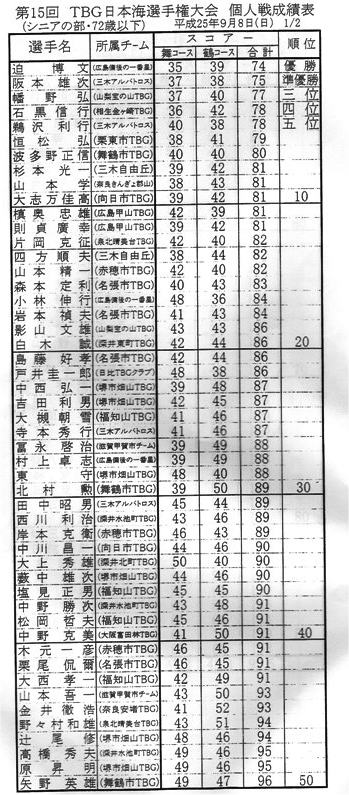 第15回 TBG日本海選手権大会 個人戦成績表
(シニアの部・72歳以下) 平成25年9月8日(日) 1/2
選手名 所属チーム スコアー 順位
舞コース 鶴コース 合計
迫 博文 (広島備後の一番星) 35 39 74 優勝
阪本 雄次 (三木アルバトロス) 37 38 75 準優勝
幡野 弘 (山梨宝の山TBG) 37 40 77 三位
石黒 信行 (相生金ヶ崎TBG) 36 42 78 四位
鵜沢 利行 (三木アルバトロス) 40 38 78 五位
恒松 弘 (栗東市TBG) 38 41 79
波多野 正信 (舞鶴市TBG) 40 40 80
杉本 光一 (三木自由丘) 39 42 81
山本 学 (奈良きんぎょ郡山) 38 43 81
大志万 佳高 (向日市TBG) 39 42 81 10
槙奥 忠雄 (広島甲山TBG) 42 39 81
則貞 廣幸 (広島甲山TBG) 39 42 81
片岡 克征 (泉北晴美台TBG) 42 40 82
四方 順夫 (三木自由丘) 38 44 82
山本 精一 (赤穂市TBG) 42 40 82
森本 定利 (名張市TBG) 40 43 83
小林 伸行 (広島備後の一番星) 48 36 84
岩本 禎夫 (名張市TBG) 41 43 84
影山 文雄 (山梨宝の山TBG) 43 43 86
白木 誠 (深井東町TBG) 42 44 86 20
島藤 好孝 (名張市TBG) 42 44 86
戸井 圭一郎 (日比TBGクラブ) 48 38 86
中西 弘一 (堺市畑山TBG) 39 48 87
吉田 利男 (堺市畑山TBG) 42 45 87
大槻 朝雪 (福知山TBG) 41 46 87
寺本 秀行 (三木アルバトロス) 41 46 87
冨永 啓治 (滋賀甲賀市チーム) 39 49 88
村上 卓志 (広島備後の一番星) 39 49 88
東 守 (堺市畑山TBG) 48 40 88
北村 勲 (舞鶴市TBG) 39 50 89 30
田中 昭男 (三木アルバトロス) 45 44 89
西川 利治 (深井水池町TBG) 43 46 89
岸本 克衛 (赤穂市TBG) 46 43 89
中川 昌一 (向日市TBG) 44 46 90
大上 秀雄 (深井北町TBG) 50 40 90
藪中 雄次 (堺市畑山TBG) 44 46 90
塩見 正男 (福知山TBG) 45 45 90
中野 勝次 (深井水池町TBG) 43 48 91
松岡 哲夫 (福知山TBG) 46 45 91
中野 克美 (大阪富田林TBG) 41 50 91 40
木元 一彦 (赤穂市TBG) 46 45 91
栗尾 侃爾 (名張市TBG) 46 45 91
大西 孝一 (福知山TBG) 42 49 91
山本 吾一 (滋賀甲賀市チーム) 43 50 93
金井 徹浩 (奈良安堵TBG) 41 52 93
野々村 和雄 (泉北晴美台TBG) 43 51 94
辻尾 修 (堺市畑山TBG) 49 46 95
高橋 秀夫 (深井水池町TBG) 49 46 95
原 昇明 (堺市畑山TBG) 49 46 95
矢野 英雄 (舞鶴市TBG) 49 47 96 50